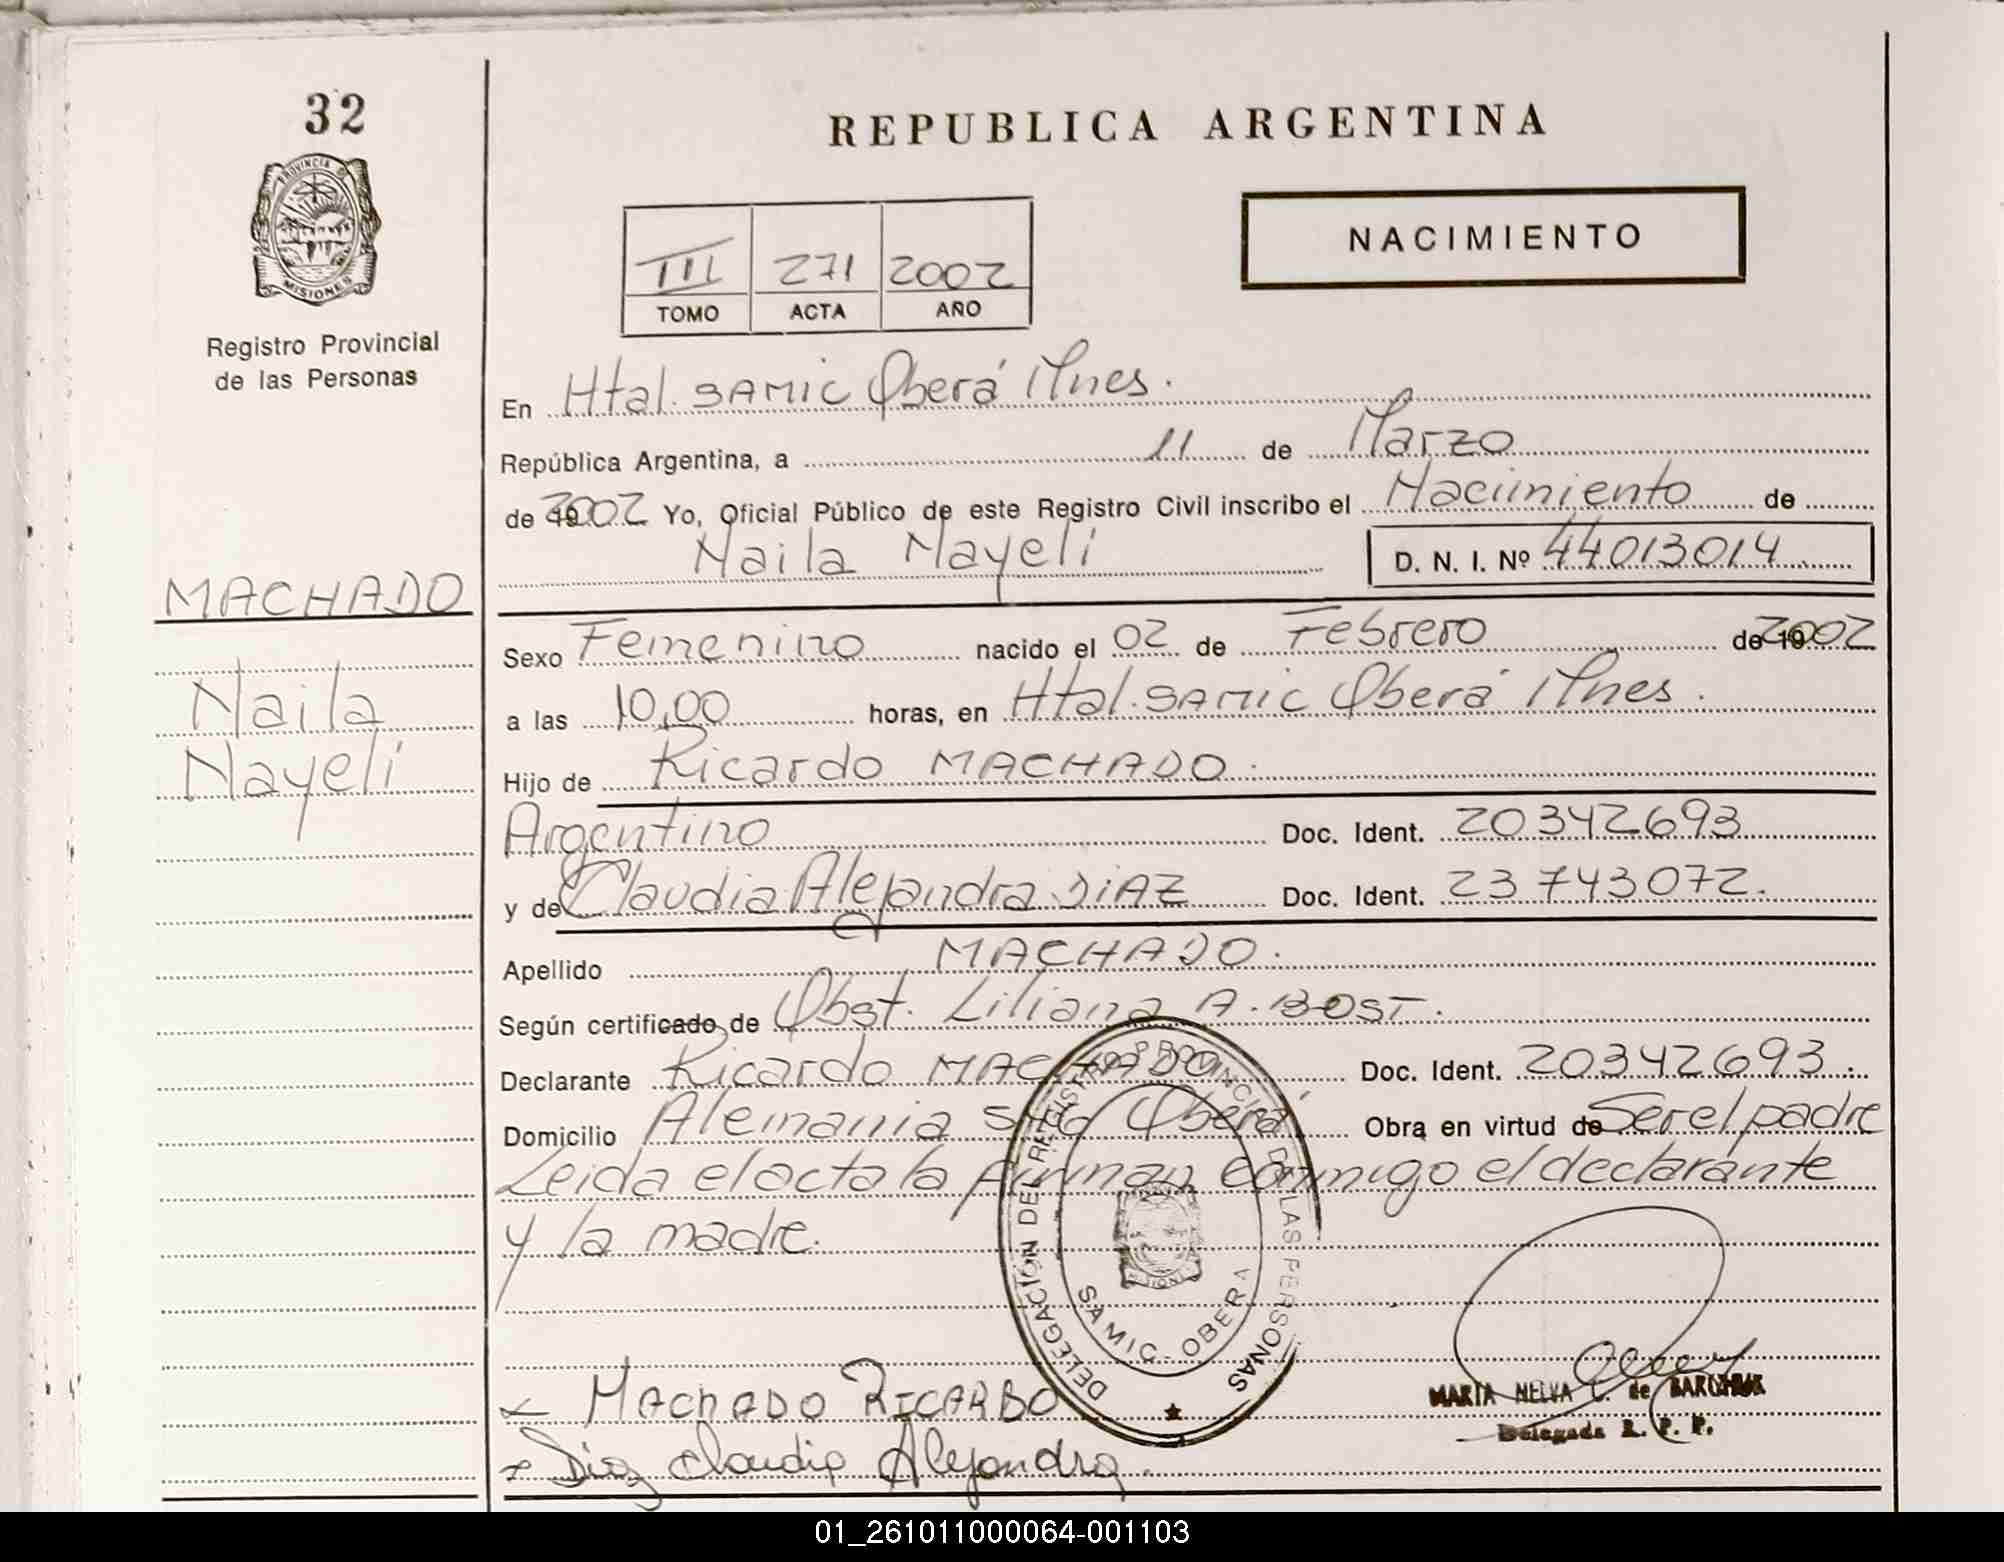 32
PROVINCIA DE
MISIONES
Registro Provincial
de las Personas
MACHADO
Naila
Nayeli
REPUBLICA ARGENTINA
III 271 2002
TOMO ACTA AÑO
NACIMIENTO
En Htal. SAMIC Oberá Mnes.
República Argentina, a 11 de Marzo
de 2002 Yo, Oficial Público de este Registro Civil inscribo el Nacimiento de
Naila Nayeli D. N. I. Nº 44013014
Sexo Femenino nacido el 02 de Febrero de 2002
a las 10,00 horas, en Htal. SAMIC Oberá Mnes.
Hijo de Ricardo MACHADO.
Argentino Doc. Ident. 20342693
y de Claudia Alejandra DiAZ Doc. Ident. 23743072.
Apellido MACHADO.
Según certificado de Obst. Liliana A. BOST.
Declarante Ricardo MACHADO Doc. Ident. 20342693.
Domicilio Alemania S/Nº Oberá Obra en virtud de Ser el padre
Leida el acta la firman conmigo el declarante
y la madre.
DELEGACIÓN DEL REGISTRO PROVINCIAL DE LAS PERSONAS
SAMIC - OBERA
MACHADO RICARDO
Diaz Claudia Alejandra.
MARIA NELVA C. de
Delegada R. P. P.
01_261011000064-001103